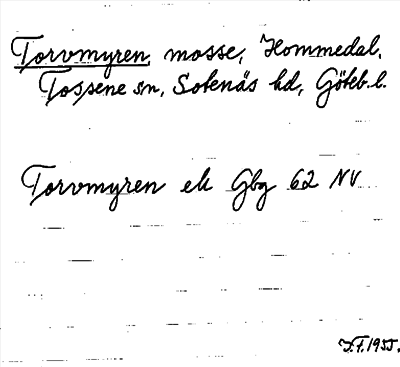 Torvmyren mosse, Hommedal,
Tossene sn, Sotenäs hd, Göteb. l.
Torvmyren ek Gbg 62 NV
J.F. 1955.